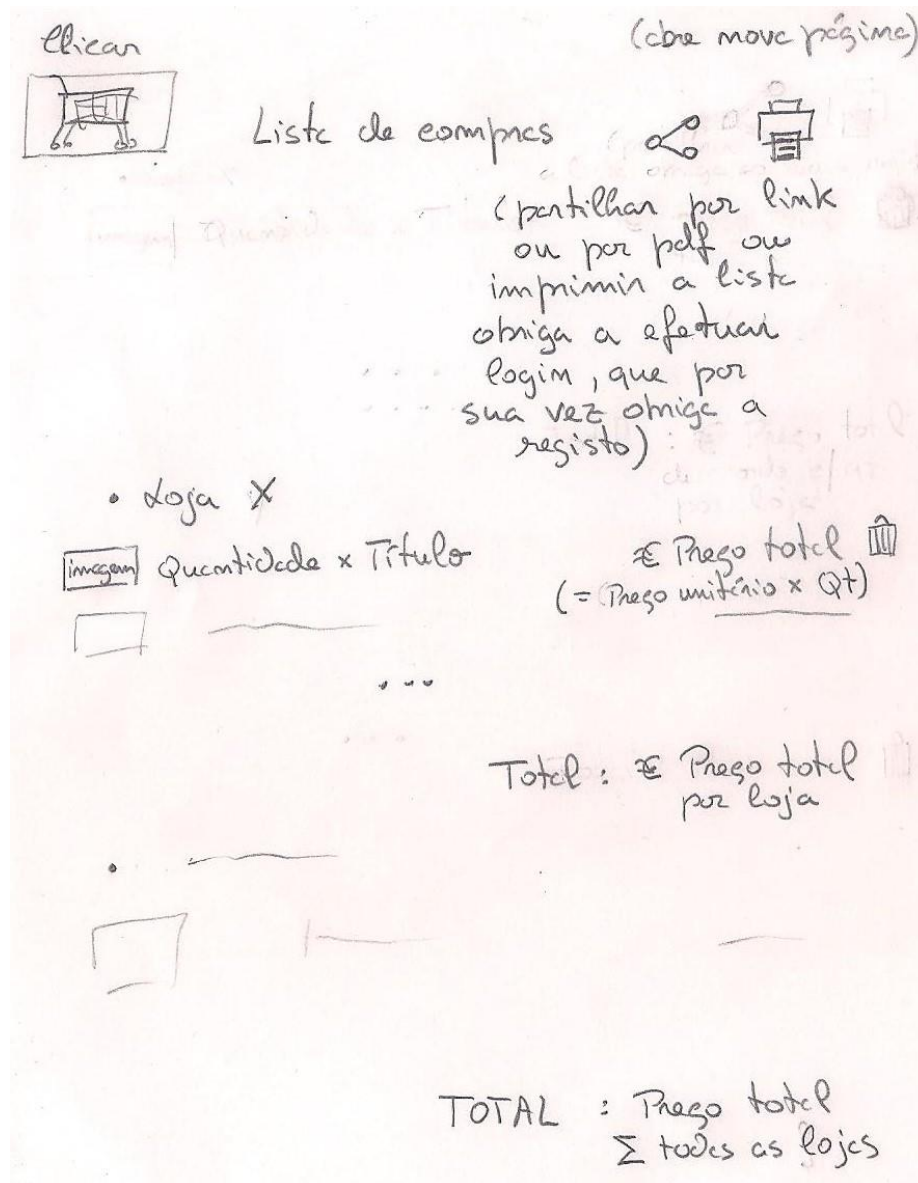 Clicar
(abre nova página)
Lista de compras
(partilhar por link
ou por pdf ou
imprimir a lista
obriga a efetuar
login, que por
sua vez obriga a
registo)
• Loja X
imagem Quantidade x Título € Preço total
(= Preço unitário x Qt)
...
Total : € Preço total
por loja
•
TOTAL : Preço total
Σ todas as lojas